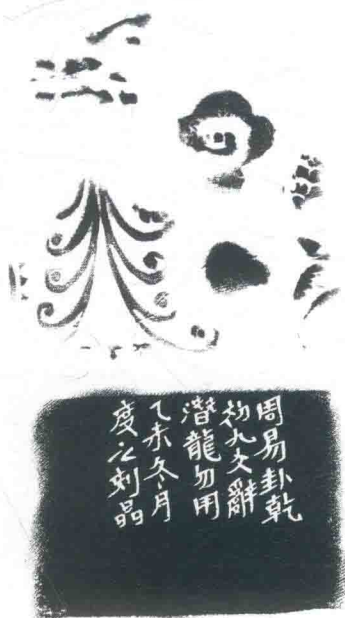 周易卦乾
初九文辭
潛龍勿用
乙未冬月
度之刻晶